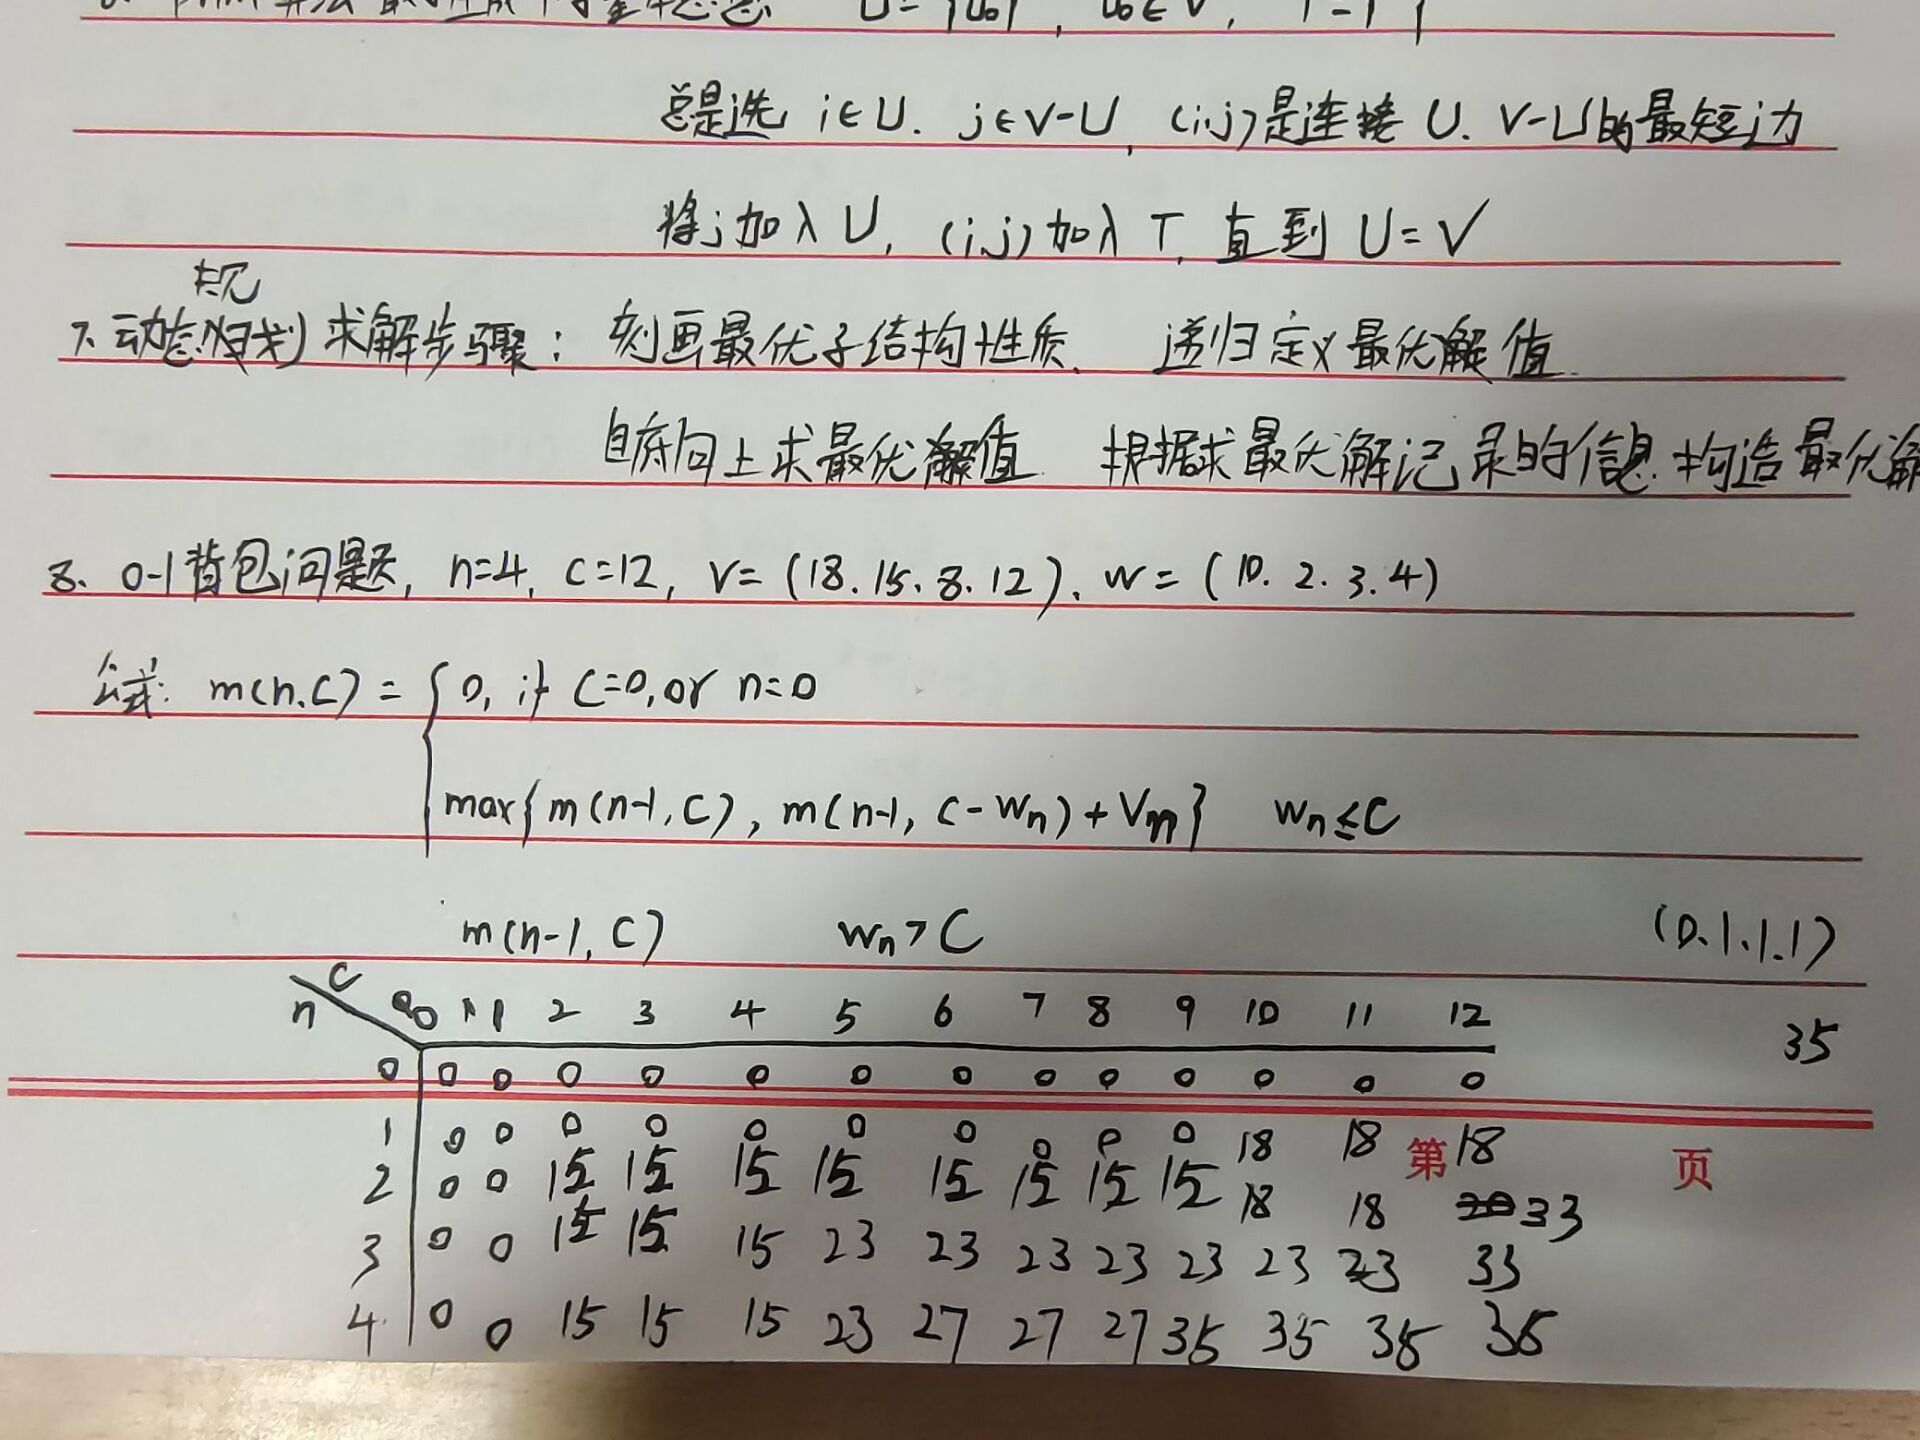 U={u₀}, u₀∈V, T=
总是选 i∈U. j∈V-U, (i.j)是连接 U. V-U的最短边
将j加入U, (i.j)加入T, 直到 U=V
规
7. 动态归划求解步骤: 刻画最优子结构性质. 递归定义最优解值.
自底向上求最优解值. 根据求最优解记录的信息.构造最优解
8. 0-1背包问题, n=4, c=12, v=(18.15.8.12), w=(10.2.3.4)
公式: m(n.C)={0, if C=0, or n=0
max{m(n-1,C), m(n-1, C-Wn)+Vn} Wn≤C
m(n-1,C) Wn>C (0.1.1.1)
n C 0 1 2 3 4 5 6 7 8 9 10 11 12 35
0 0 0 0 0 0 0 0 0 0 0 0 0 0
1 0 0 0 0 0 0 0 0 0 0 18 18 18 第 页
2 0 0 15 15 15 15 15 15 15 15 18 18 33
3 0 0 15 15 15 23 23 23 23 23 23 23 33
4. 0 0 15 15 15 23 27 27 27 35 35 35 35